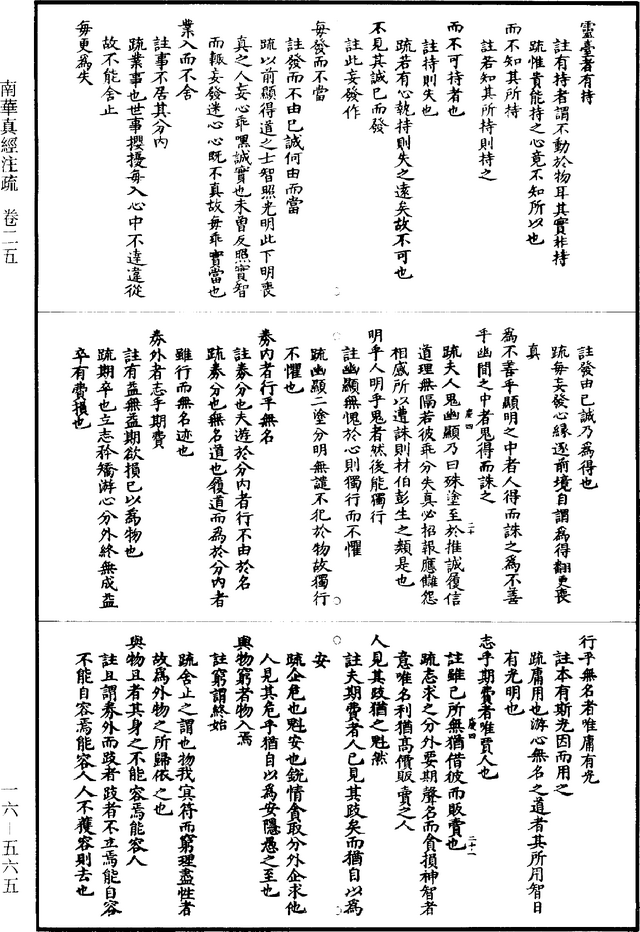 靈臺者有持
註有持者謂不動於物耳其實非持
疏惟貴能持之心竟不知所以也
而不知其所持
註若知其所持則持之
而不可持者也
註持則失也
疏若有心執持則失之遠矣故不可也
不見其誠己而發
註此妄發作
每發而不當
註發而不由己誠何由而當
疏以前顯得道之士智照光明此下明喪
真之人妄心乖理誠實也未曾反照實智
而輒妄發迷心心既不真故每乖實當也
業入而不舍
註事不居其分內
疏業事也世事攖擾每入心中不達違從
故不能舍止
每更為失
註發由己誠乃為得也
疏每妄發心緣逐前境自謂為得翻更喪
真
為不善乎顯明之中者人得而誅之為不善
乎幽間之中者鬼得而誅之
疏夫人鬼幽顯乃曰殊塗至於推誠履信
道理無隔若彼乖分失真必招報應讎怨
相感所以遭誅則杜伯彭生之類是也
明乎人明乎鬼者然後能獨行
註幽顯無愧於心則獨行而不懼
疏幽顯二塗分明無譴不犯於物故獨行
不懼也
券內者行乎無名
註券分也夫遊於分內者行不由於名
疏券分也無名道也履道而為於分內者
雖行而無名迹也
券外者志乎期費
註有益無益期欲損己以為物也
疏期卒也立志矜矯游心分外終無成益
卒有費損也
行乎無名者唯庸有光
註本有斯光因而用之
疏庸用也游心無名之道者其所用智日
有光明也
志乎期費者唯賈人也
註雖己所無猶借彼而販賣也
疏志求之分外要期聲名而貪損神智者
意唯名利猶高價販賣之人
人見其跂猶之魁然
註夫期費者人已見其跂矣而猶自以為
安
疏企危也魁安也銳情貪取分外企求他
人見其危乎猶自以為安隱愚之至也
與物窮者物入焉
註窮謂終始
疏舍止之謂也物我冥符而窮理盡性者
故為外物之所歸依之也
與物且者其身之不能容焉能容人
註且謂券外而跂者跂者不立焉能自容
不能自容焉能容人人不獲容則去也
南華真經注疏 卷二五
一六—五六五